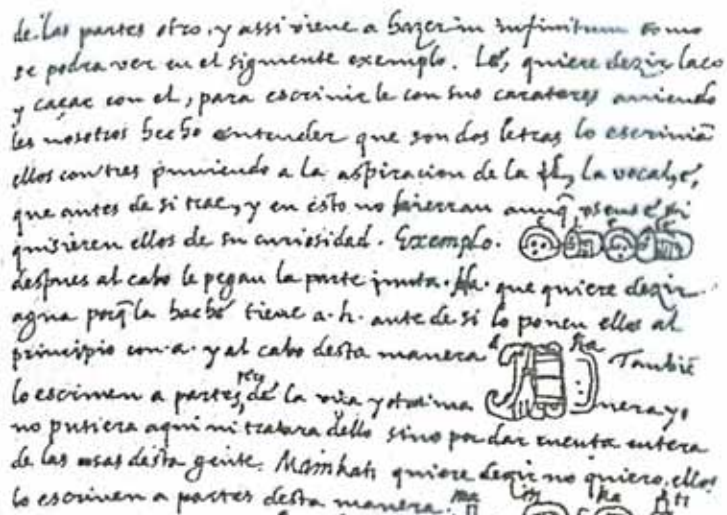 de las partes otro, y assi viene a hazer in infinitum como
se podra ver en el siguiente exemplo. Lé, quiere dezir laço
y caçar con el, para escrivirle con sus carateres aviendo
les nosotros hecho entender que son dos letras lo escrivian
ellos con tres puniendo a la aspiracion de la l, la vocal, é,
que antes de si trae, y en esto no hierran aunq̃ usense, si
quisieren ellos de su curiosidad. Exemplo. e l e lé
despues al cabo le pegan la parte junta. Ha. que quiere dezir
agua porq̃ la hache tiene a. h. ante de si lo ponen ellos al
principio con. a. y al cabo desta manera a ha Tambiẽ
lo escriven a partes, pero de la una y otra ma nera yo
no pusiera aqui ni tratara dello sino por dar cuenta entera
de las cosas desta gente. Mainkati quiere dezir no quiero, ellos
lo escriven a partes desta manera. ma in ka ti